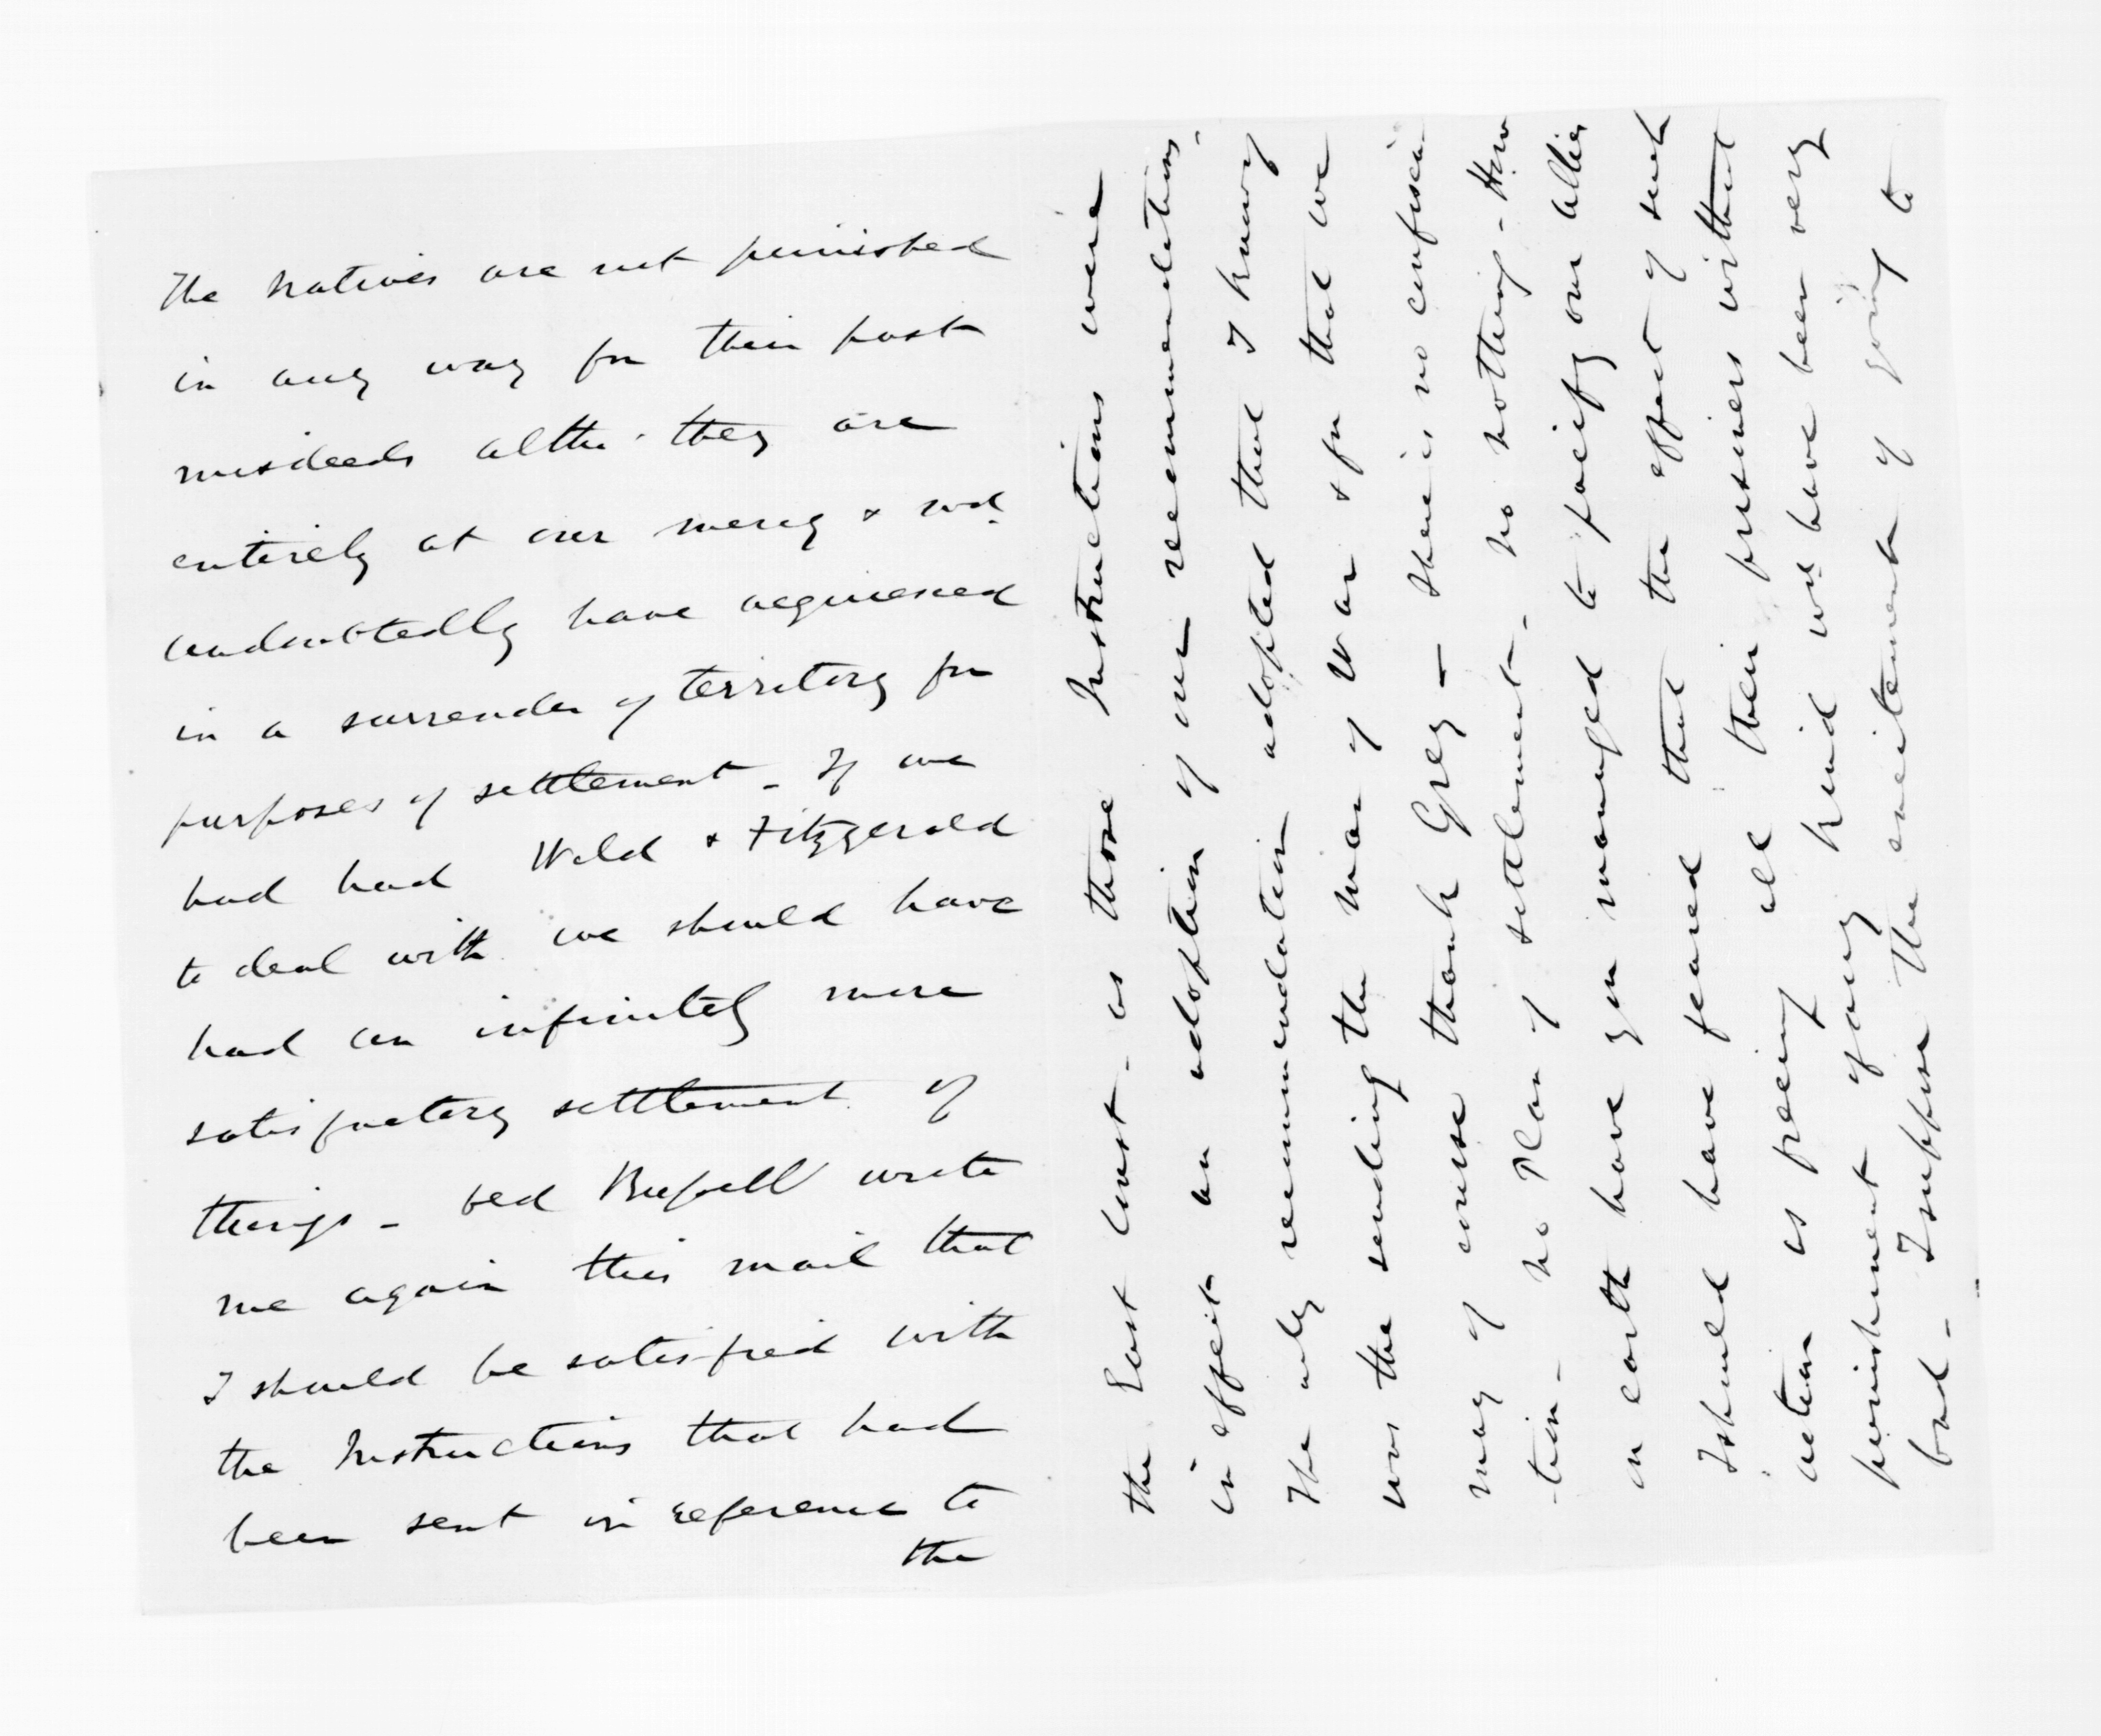 The Natives are not punished
in any way for their past
misdeeds altho' they are
entirely at our mercy & wd
undoubtedly have acquiesced
in a surrender of territory for
purposes of settlement - If we
had had Weld & Fitzgerald
to deal with we should have
had an infinitely more
satisfactory settlement of
things - Russell wrote
me again this mail that
I should be satisfied with
the Instructions that had
been sent in reference to
the
the East Coast - as those Instructions were
in effect an adoption of our recommendations -
The only recommendation adopted that I know of
was the sending the man of War & for that we
may of course thank Grey - There is no confisca
-tion - no Plan of settlement - no nothing - How
on earth have you managed to pacify our allies
I should have feared that the effect of such
action as freeing all their prisoners without
punishment of any kind wd have been very
bad - I suppose the excitement of going to